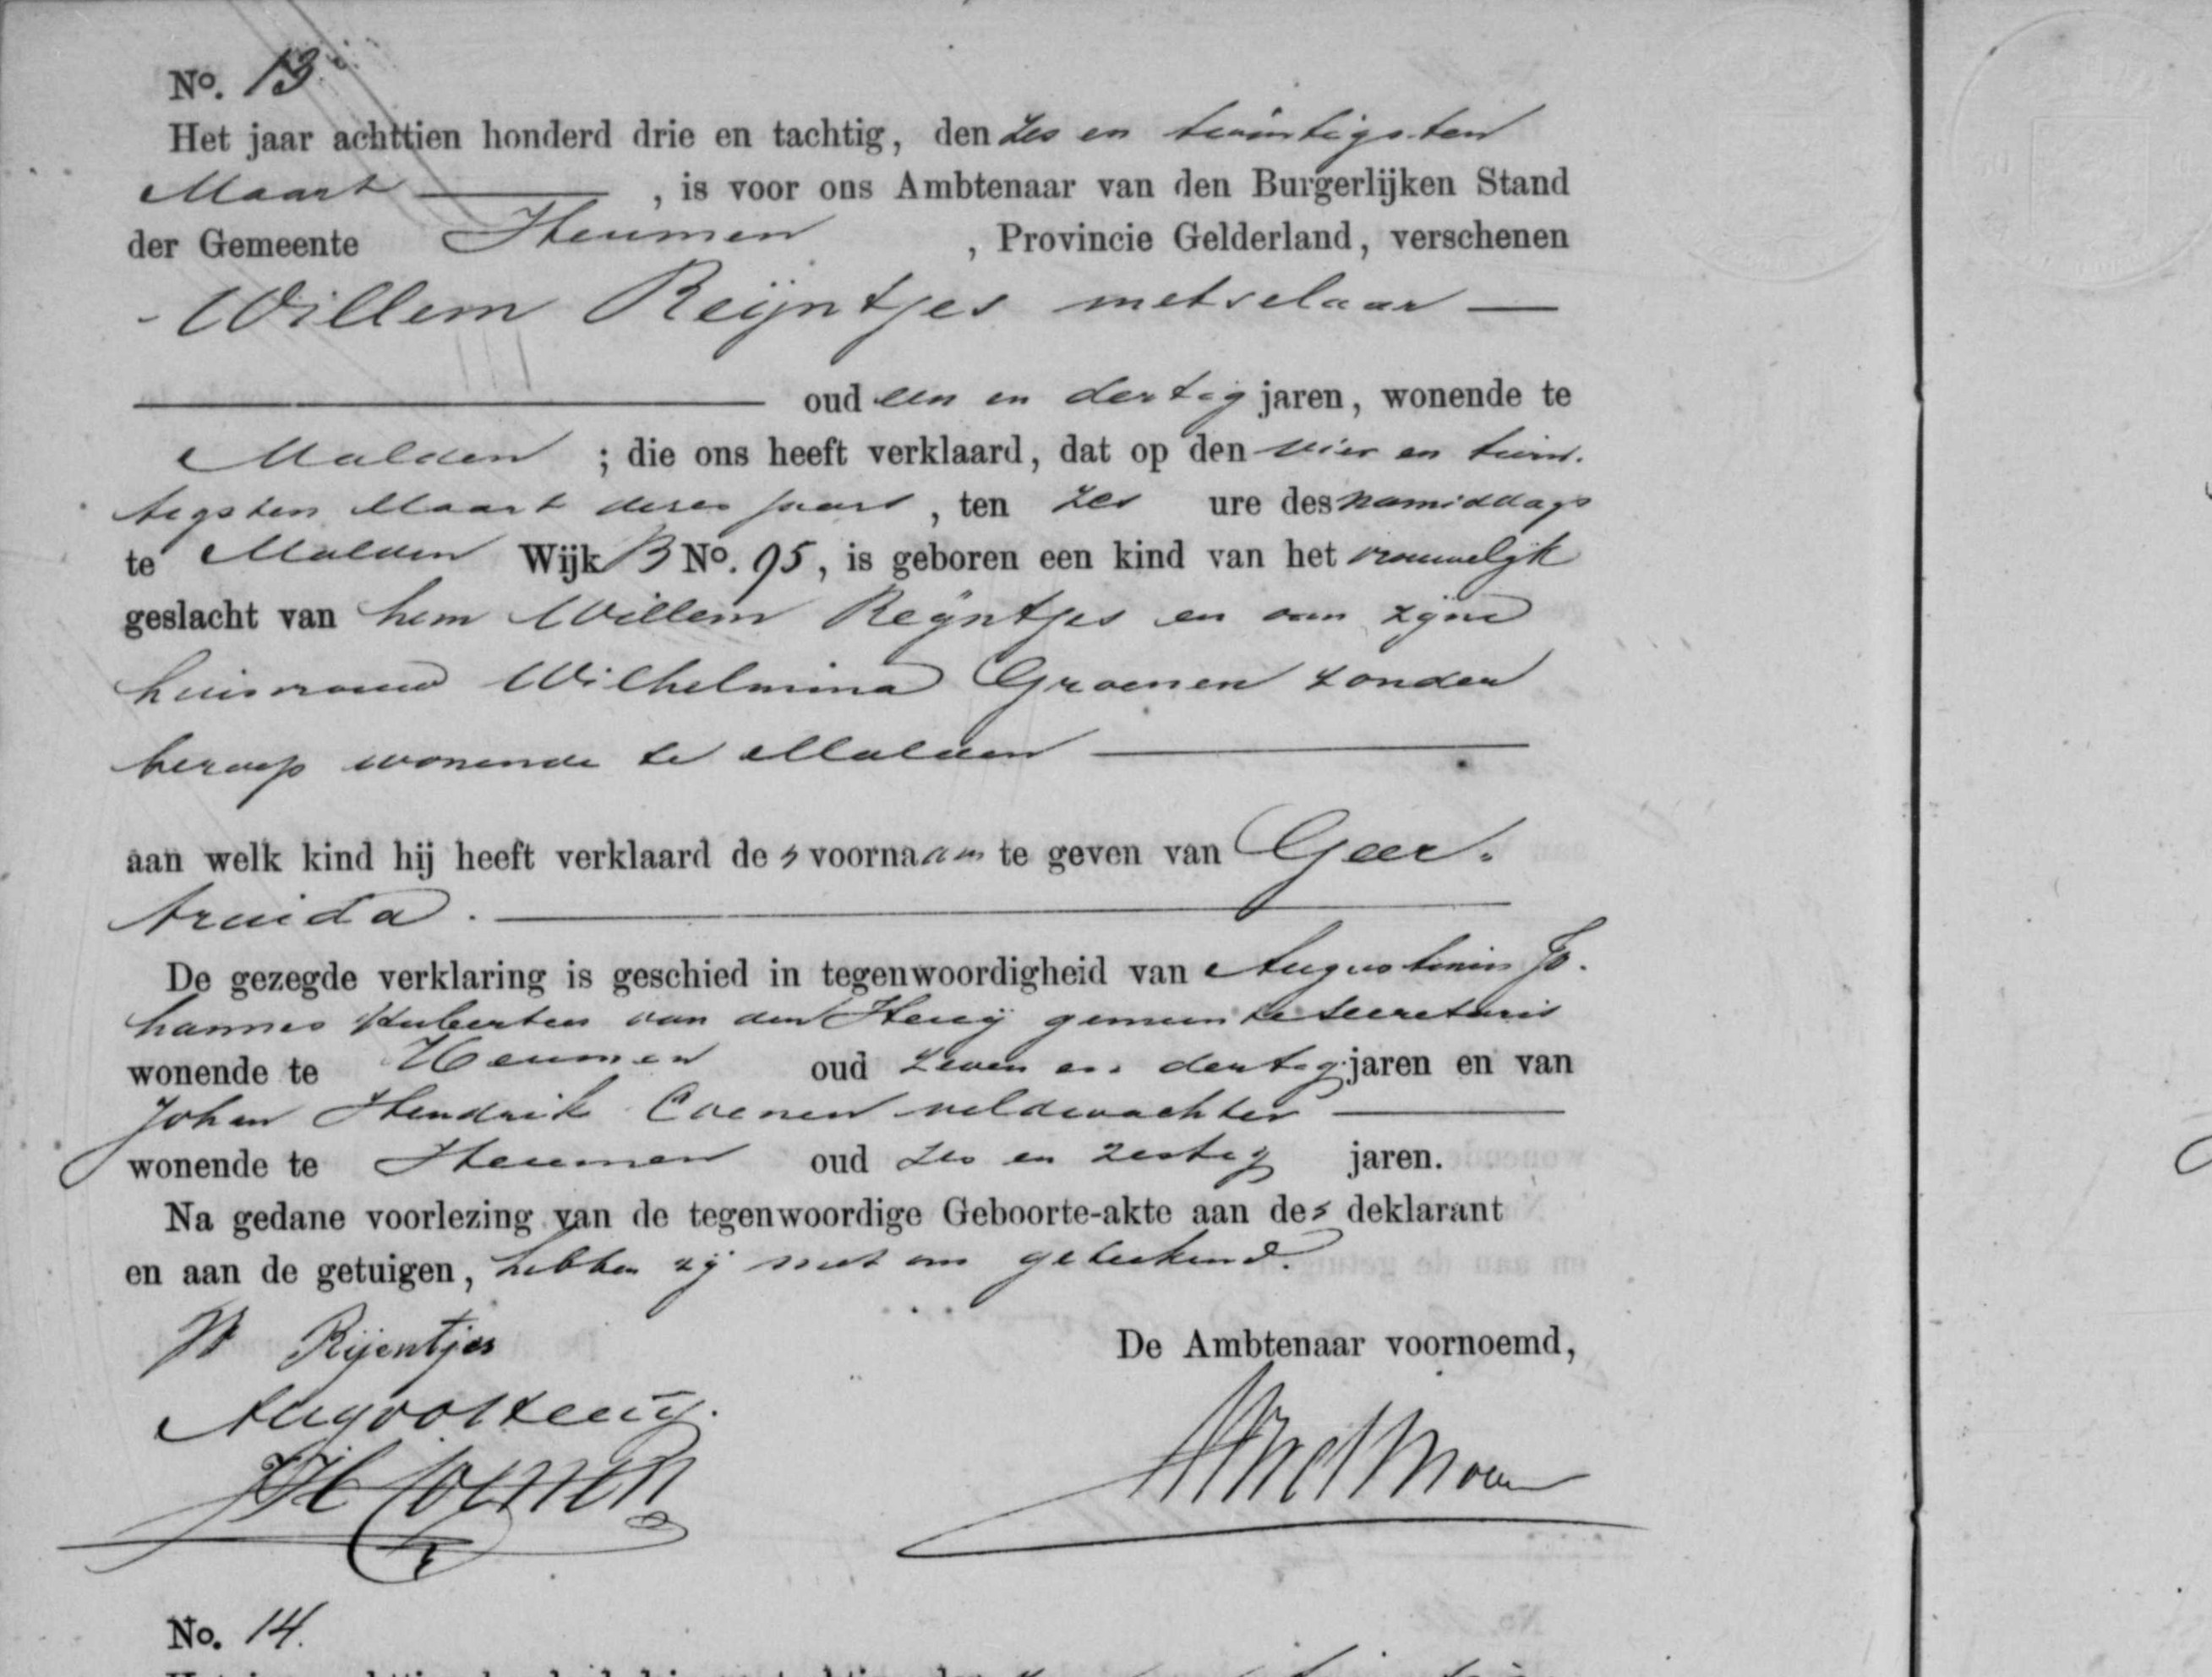 No. 13.
Het jaar achttien honderd drie en tachtig, den zes en twintigsten
Maart , is voor ons Ambtenaar van den Burgerlijken Stand
der Gemeente Heumen , Provincie Gelderland, verschenen
Willem Reijntjes metselaar
oud een en dertig jaren, wonende te
Malden ; die ons heeft verklaard, dat op den vier en twin-
tigsten Maart dezes jaars, ten zes ure des namiddags
te Malden Wijk B No. 95, is geboren een kind van het vrouwelijk
geslacht van hem Willem Reijntjes en van zijne
huisvrouw Wilhelmina Groenen zonder
beroep wonende te Malden
aan welk kind hij heeft verklaard de voornaam te geven van Geer-
truida.
De gezegde verklaring is geschied in tegenwoordigheid van Augustinus Jo-
hannes Hubertus van den Heuij gemeente secretaris
wonende te Heumen oud zeven en dertig jaren en van
Johan Hendrik Coenen veldwachter
wonende te Heumen oud zes en zestig jaren.
Na gedane voorlezing van de tegenwoordige Geboorte-akte aan de deklarant
en aan de getuigen, hebben zij met ons geteekend.
W Rijentjes
De Ambtenaar voornoemd,
JH Coenen
No. 14.